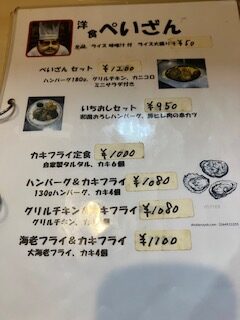 洋食 ぺいざん
全品、ライス 味噌汁 付 ライス大盛り ¥50
ぺいざん セット ¥1200
ハンバーグ180g、グリルチキン、カニコロ
ミニサラダ付き
いちおしセット ¥950
和風おろしハンバーグ、豚ヒレ肉の串カツ
カキフライ定食 ¥1000
自家製タルタル、カキ6個
ハンバーグ&カキフライ ¥1080
130gハンバーグ、カキ4個
グリルチキン&カキフライ ¥1080
グリルチキン、カキ4個
海老フライ&カキフライ ¥1100
大海老フライ、カキ4個